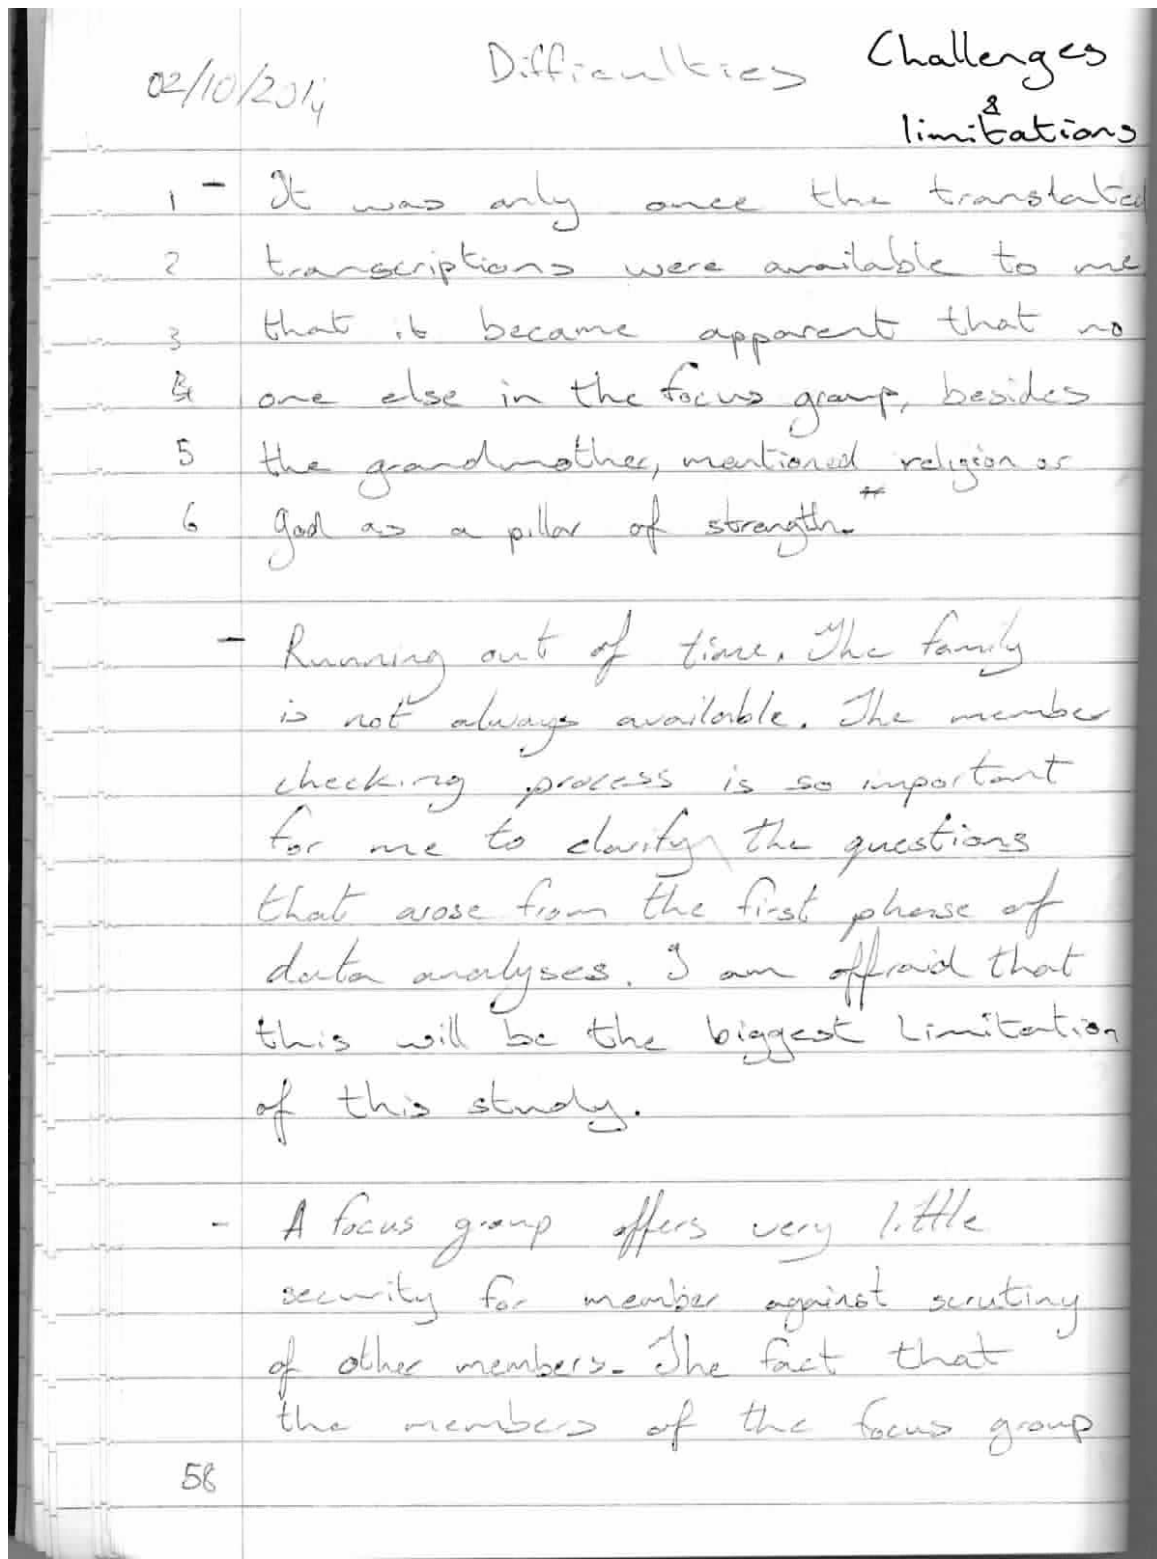 Challenges
02/10/2014 Difficulties
&
limitations
1 - It was only once the translated
2 transcriptions were available to me
3 that it became apparent that no
4 one else in the focus group, besides
5 the grandmother, mentioned religion or
6 god as a pillar of strength. #
- Running out of time. The family
is not always available. The member
checking process is so important
for me to clarify the questions
that arose from the first phase of
data analyses. I am affraid that
this will be the biggest limitation
of this study.
- A focus group offers very little
security for member against scrutiny
of other members. The fact that
the members of the focus group
58